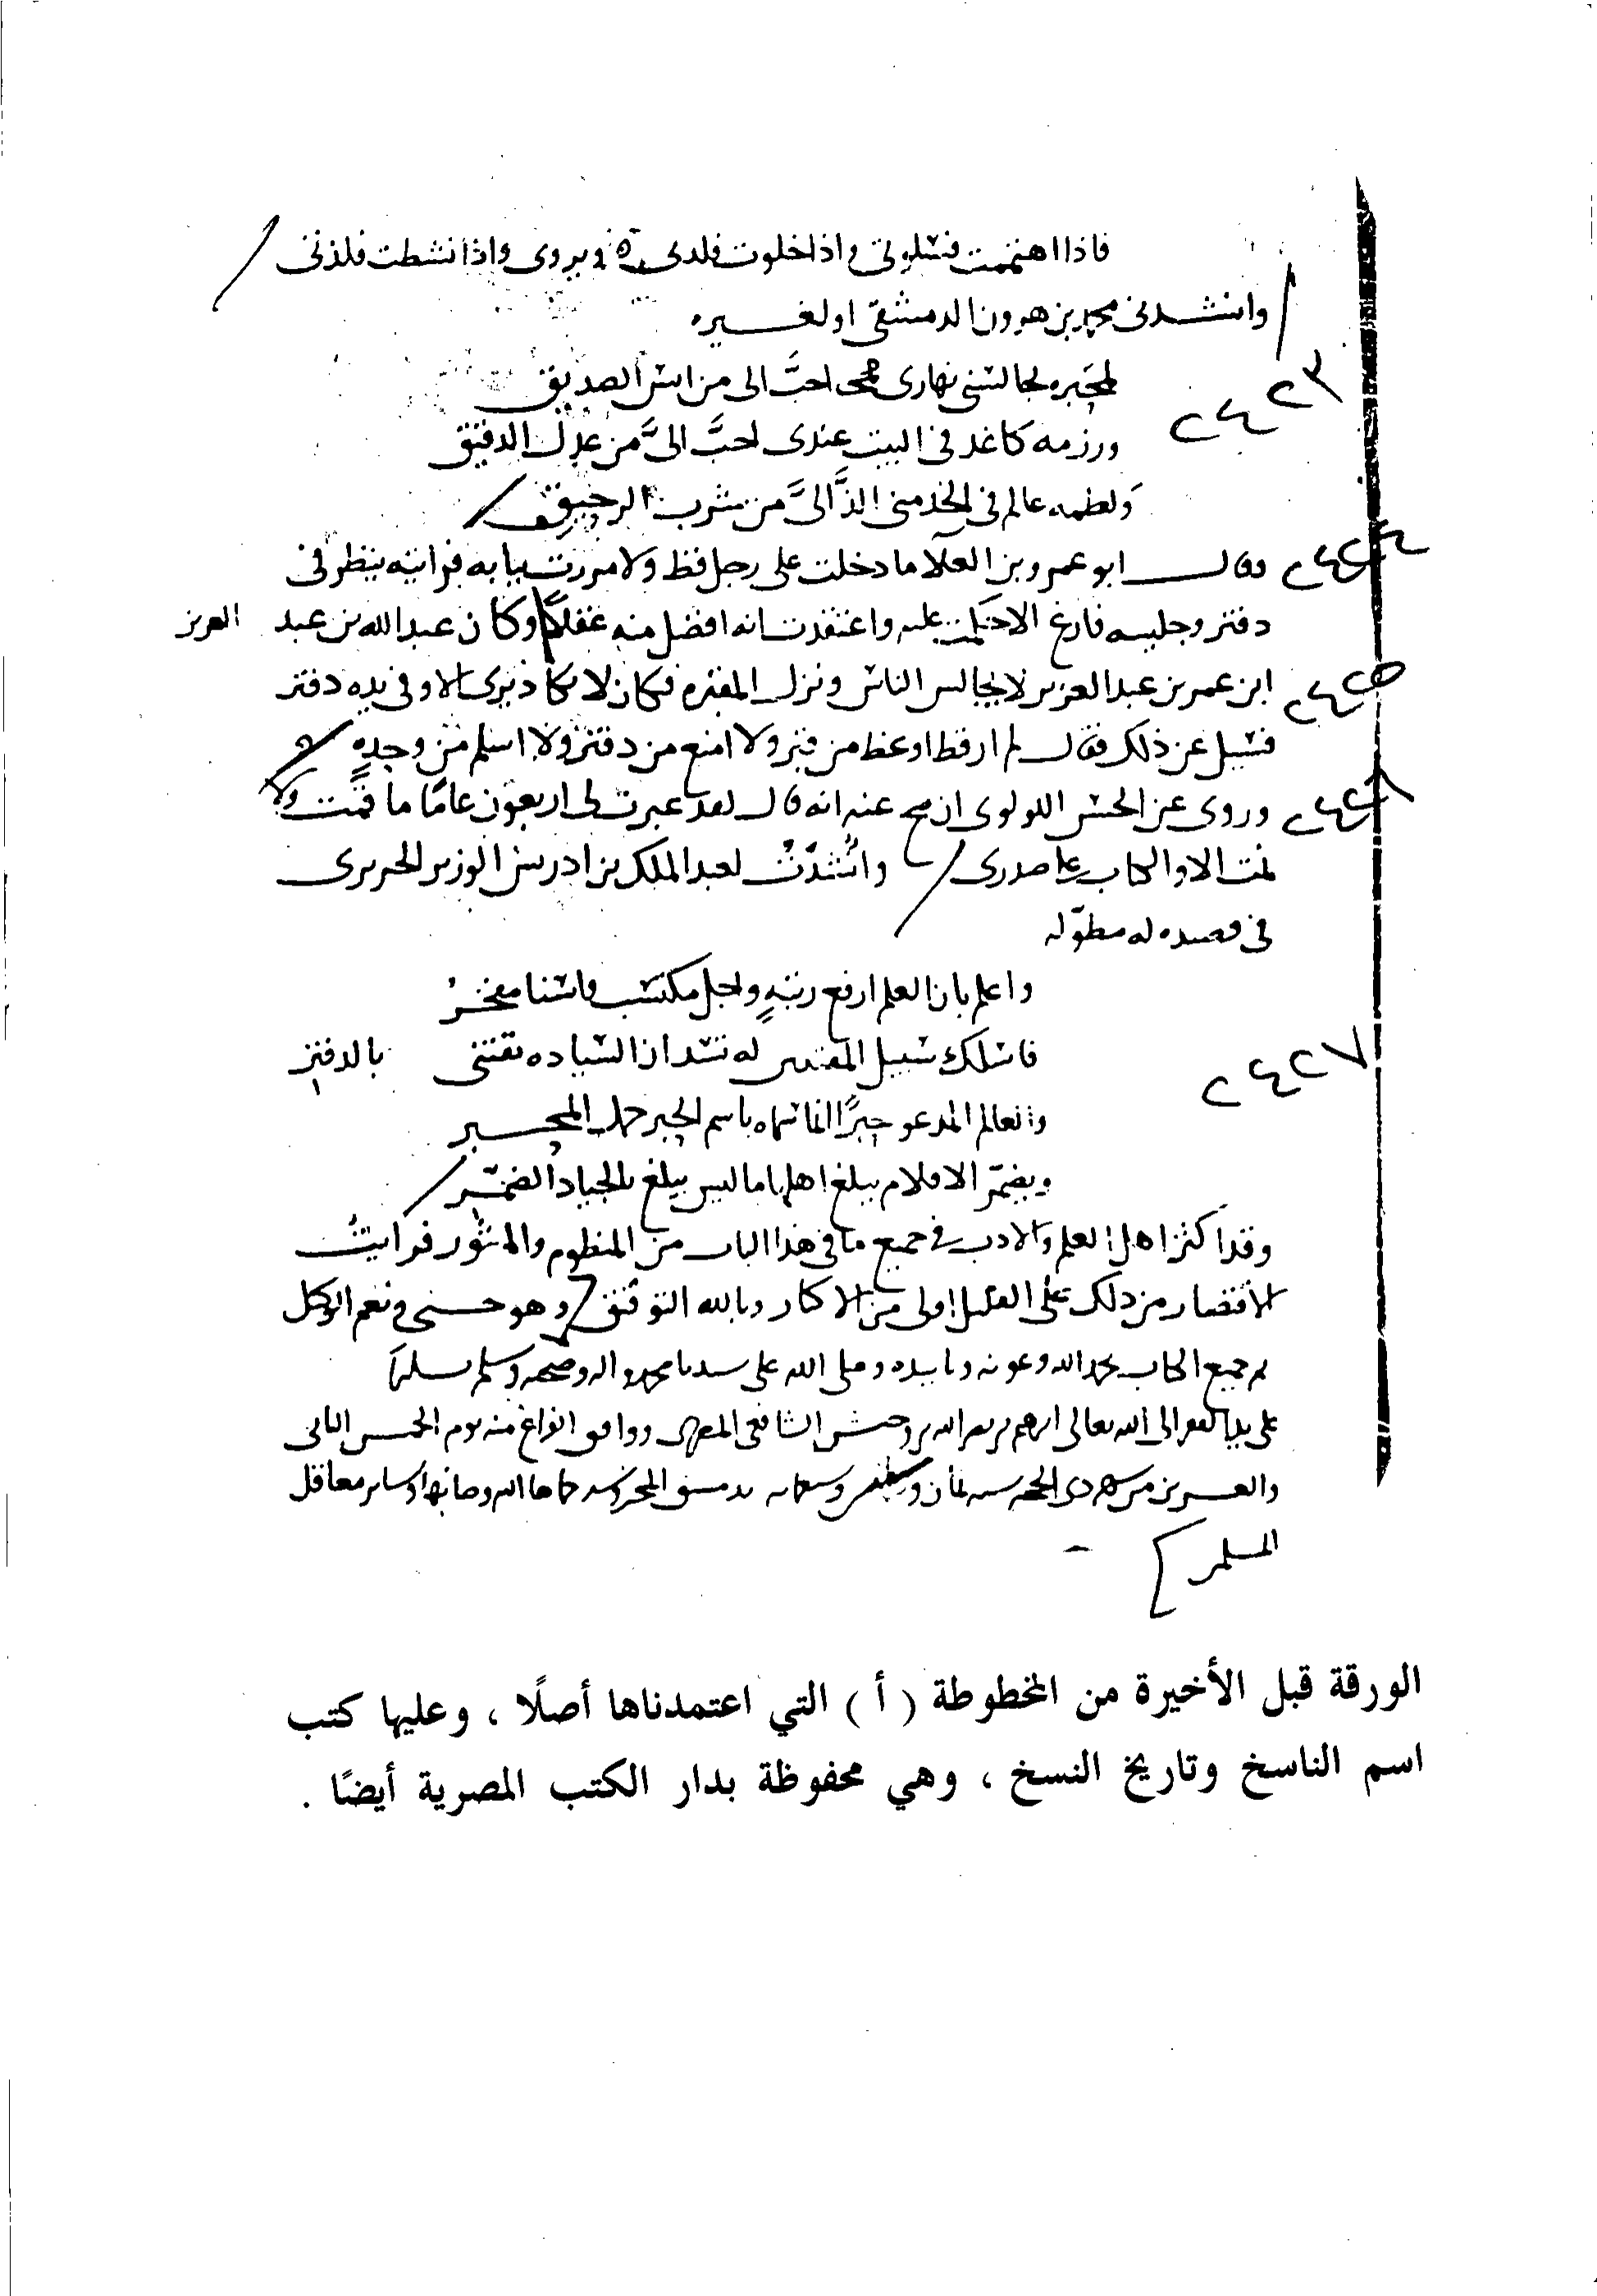 فاذا اهتممت فسلوتى واذا خلوت فلذتى ويروى واذا نشطت فلذتى
وانشدنى محمد بن هرون الدمشقى او لغيره
لمحبره تجالسنى نهارى احبَّ الى من انس الصديق
٢٤٢٣
ورزمه كاغد فى البيت عندى احبَّ الىَّ من عدل الدقيق
ولطمه عالم فى الخد منى الذَّ الىَّ من شرب الرحيق
٢٤٢٤
وقال ابو عمرو بن العلا ما دخلت على رجل قط ولا مررت ببابه فرايته ينظر فى
دفتر وجليسه فارغ الا حكمت عليه واعتقدت انه افضل منه عقلاً وكان عبد الله بن عبد العزيز
٢٤٢٥
ابن عمر بن عبد العزيز لا يجالس الناس ونزل المقبره فكان لا يكاد يرى الا وفى يده دفتر
فسيل عن ذلك فقال لم ار قط اوعظ من قبر ولا امنع من دفتر ولا اسلم من وحدهٍ
٢٤٢٦
وروى عن الحسن اللولوى ان صح عنه انه قال لقد عبرت لى اربعون عامًا ما قمت ولا
نمت الا والكتاب على صدرى وانشدتُ لعبد الملك بن ادريس الوزير الجريرى
فى قصيده له مطوّله
واعلم بان العلم ارفع رتبهٍ واجل مكتسب واسنا مفخرُ
٢٤٢٧
فاسلك سبيل المقتنين له تسد ان السياده تقتنى بالدفتر
والعالم المدعو حبرًا انما سماه باسم الحبر حمل المحبر
وبضمّر الاقلام يبلغ اهلها ما ليس يبلغ بالجياد الضمّر
وقد اكثر اهل العلم والادب فى جميع ما فى هذا الباب من المنظوم والمنثور فرايتُ
الاقتصار من ذلك على القليل اولى من الاكثار وبالله التوفيق وهو حسبى ونعم الوكيل
تم جميع الكتاب بحمد الله وعونه وتاييده وصلى الله على سيدنا محمد واله وصحبه وسلم تسليما
على يد الفقير الى الله تعالى ابرهيم بن الشافعى ووافق الفراغ منه يوم الخميس الثانى
والعشرين من شهر ذى الحجه سنه ثمان وسبعمايه بدمشق المحروسه حماها الله وصانها وساير معاقل
المسلمين
الورقة قبل الأخيرة من المخطوطة ( أ ) التي اعتمدناها أصلًا ، وعليها كتب
اسم الناسخ وتاريخ النسخ ، وهي محفوظة بدار الكتب المصرية أيضًا .